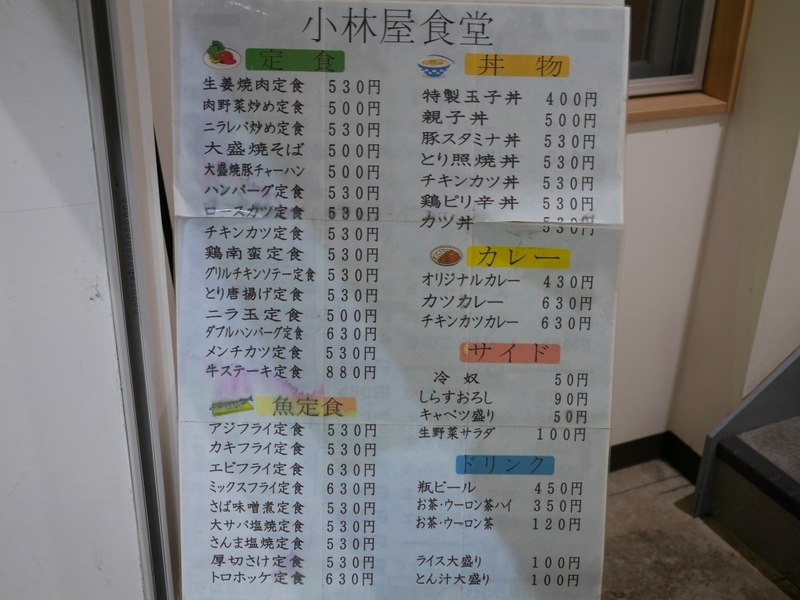 小林屋食堂
定食
生姜焼肉定食 530円
肉野菜炒め定食 500円
ニラレバ炒め定食 530円
大盛焼そば 500円
大盛焼豚チャーハン 500円
ハンバーグ定食 530円
ロースカツ定食 530円
チキンカツ定食 530円
鶏南蛮定食 530円
グリルチキンソテー定食 530円
とり唐揚げ定食 530円
ニラ玉定食 500円
ダブルハンバーグ定食 630円
メンチカツ定食 530円
牛ステーキ定食 880円
魚定食
アジフライ定食 530円
カキフライ定食 530円
エビフライ定食 630円
ミックスフライ定食 630円
さば味噌煮定食 530円
大サバ塩焼定食 530円
さんま塩焼定食 530円
厚切さけ定食 530円
トロホッケ定食 630円
丼物
特製玉子丼 400円
親子丼 500円
豚スタミナ丼 530円
とり照焼丼 530円
チキンカツ丼 530円
鶏ピリ辛丼 530円
カツ丼 530円
カレー
オリジナルカレー 430円
カツカレー 630円
チキンカツカレー 630円
サイド
冷奴 50円
しらすおろし 90円
キャベツ盛り 50円
生野菜サラダ 100円
ドリンク
瓶ビール 450円
お茶・ウーロン茶ハイ 350円
お茶・ウーロン茶 120円
ライス大盛り 100円
とん汁大盛り 100円